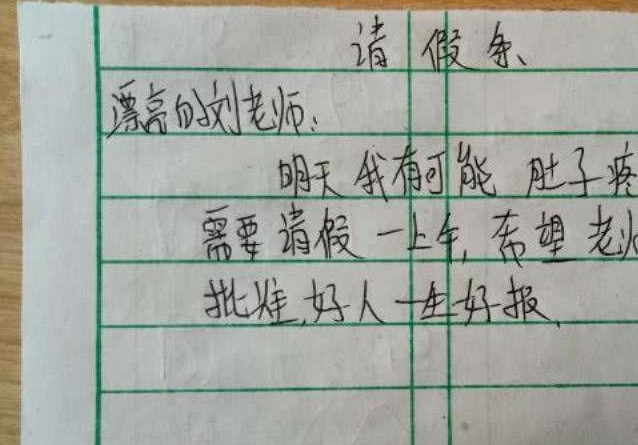 请假条
漂亮的刘老师:
明天我有可能 肚子疼
需要请假一上午,希望老师
批准,好人一生好报.